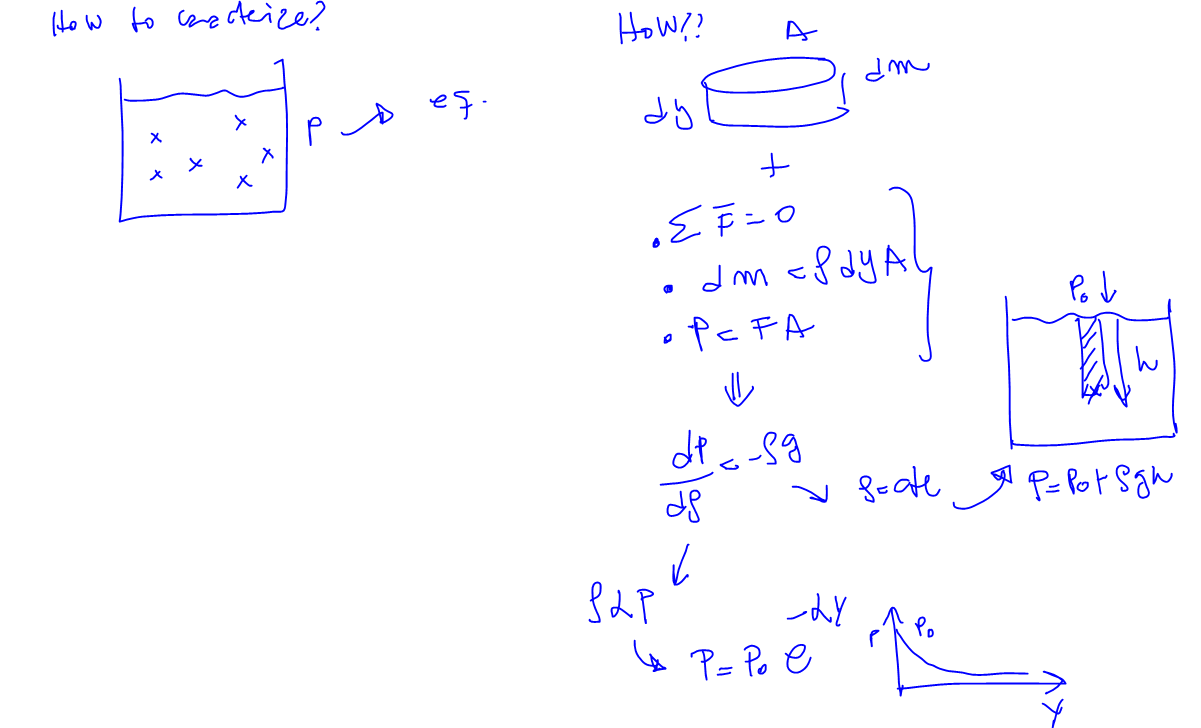 How to caracterize?
P → eq.
HOW??
A
dy
dm
+
• Σ F̅ = 0
• dm = ρ dy A
• P = F A
⇓
dP/dρ = -ρg
↘ ρ = cte
P₀ ↓
h
P = P₀ + ρgh
ρ α P
↘ P = P₀ e^{-αY}
P
P₀
Y